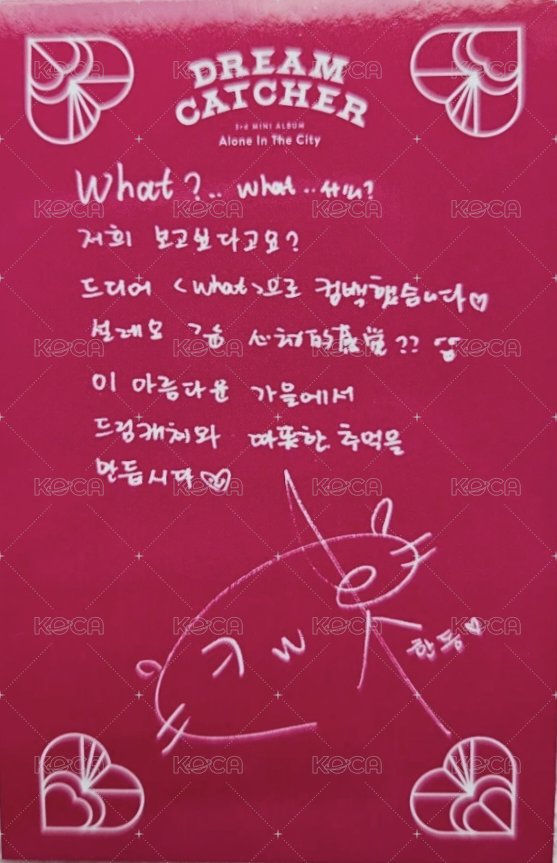 DREAM
CATCHER
3rd MINI ALBUM
Alone In The City
What?.. what..
저희 보고싶다고요?
드디어 <What>으로 컴백했습니다♡
설레요 ??
이 아름다운 가을에서
드림캐쳐와 따뜻한 추억을
만듭시다♡
한동♡
KOCA KOCA KOCA
KOCA KOCA KOCA
KOCA KOCA KOCA
KOCA KOCA KOCA
KOCA KOCA KOCA
KOCA KOCA KOCA